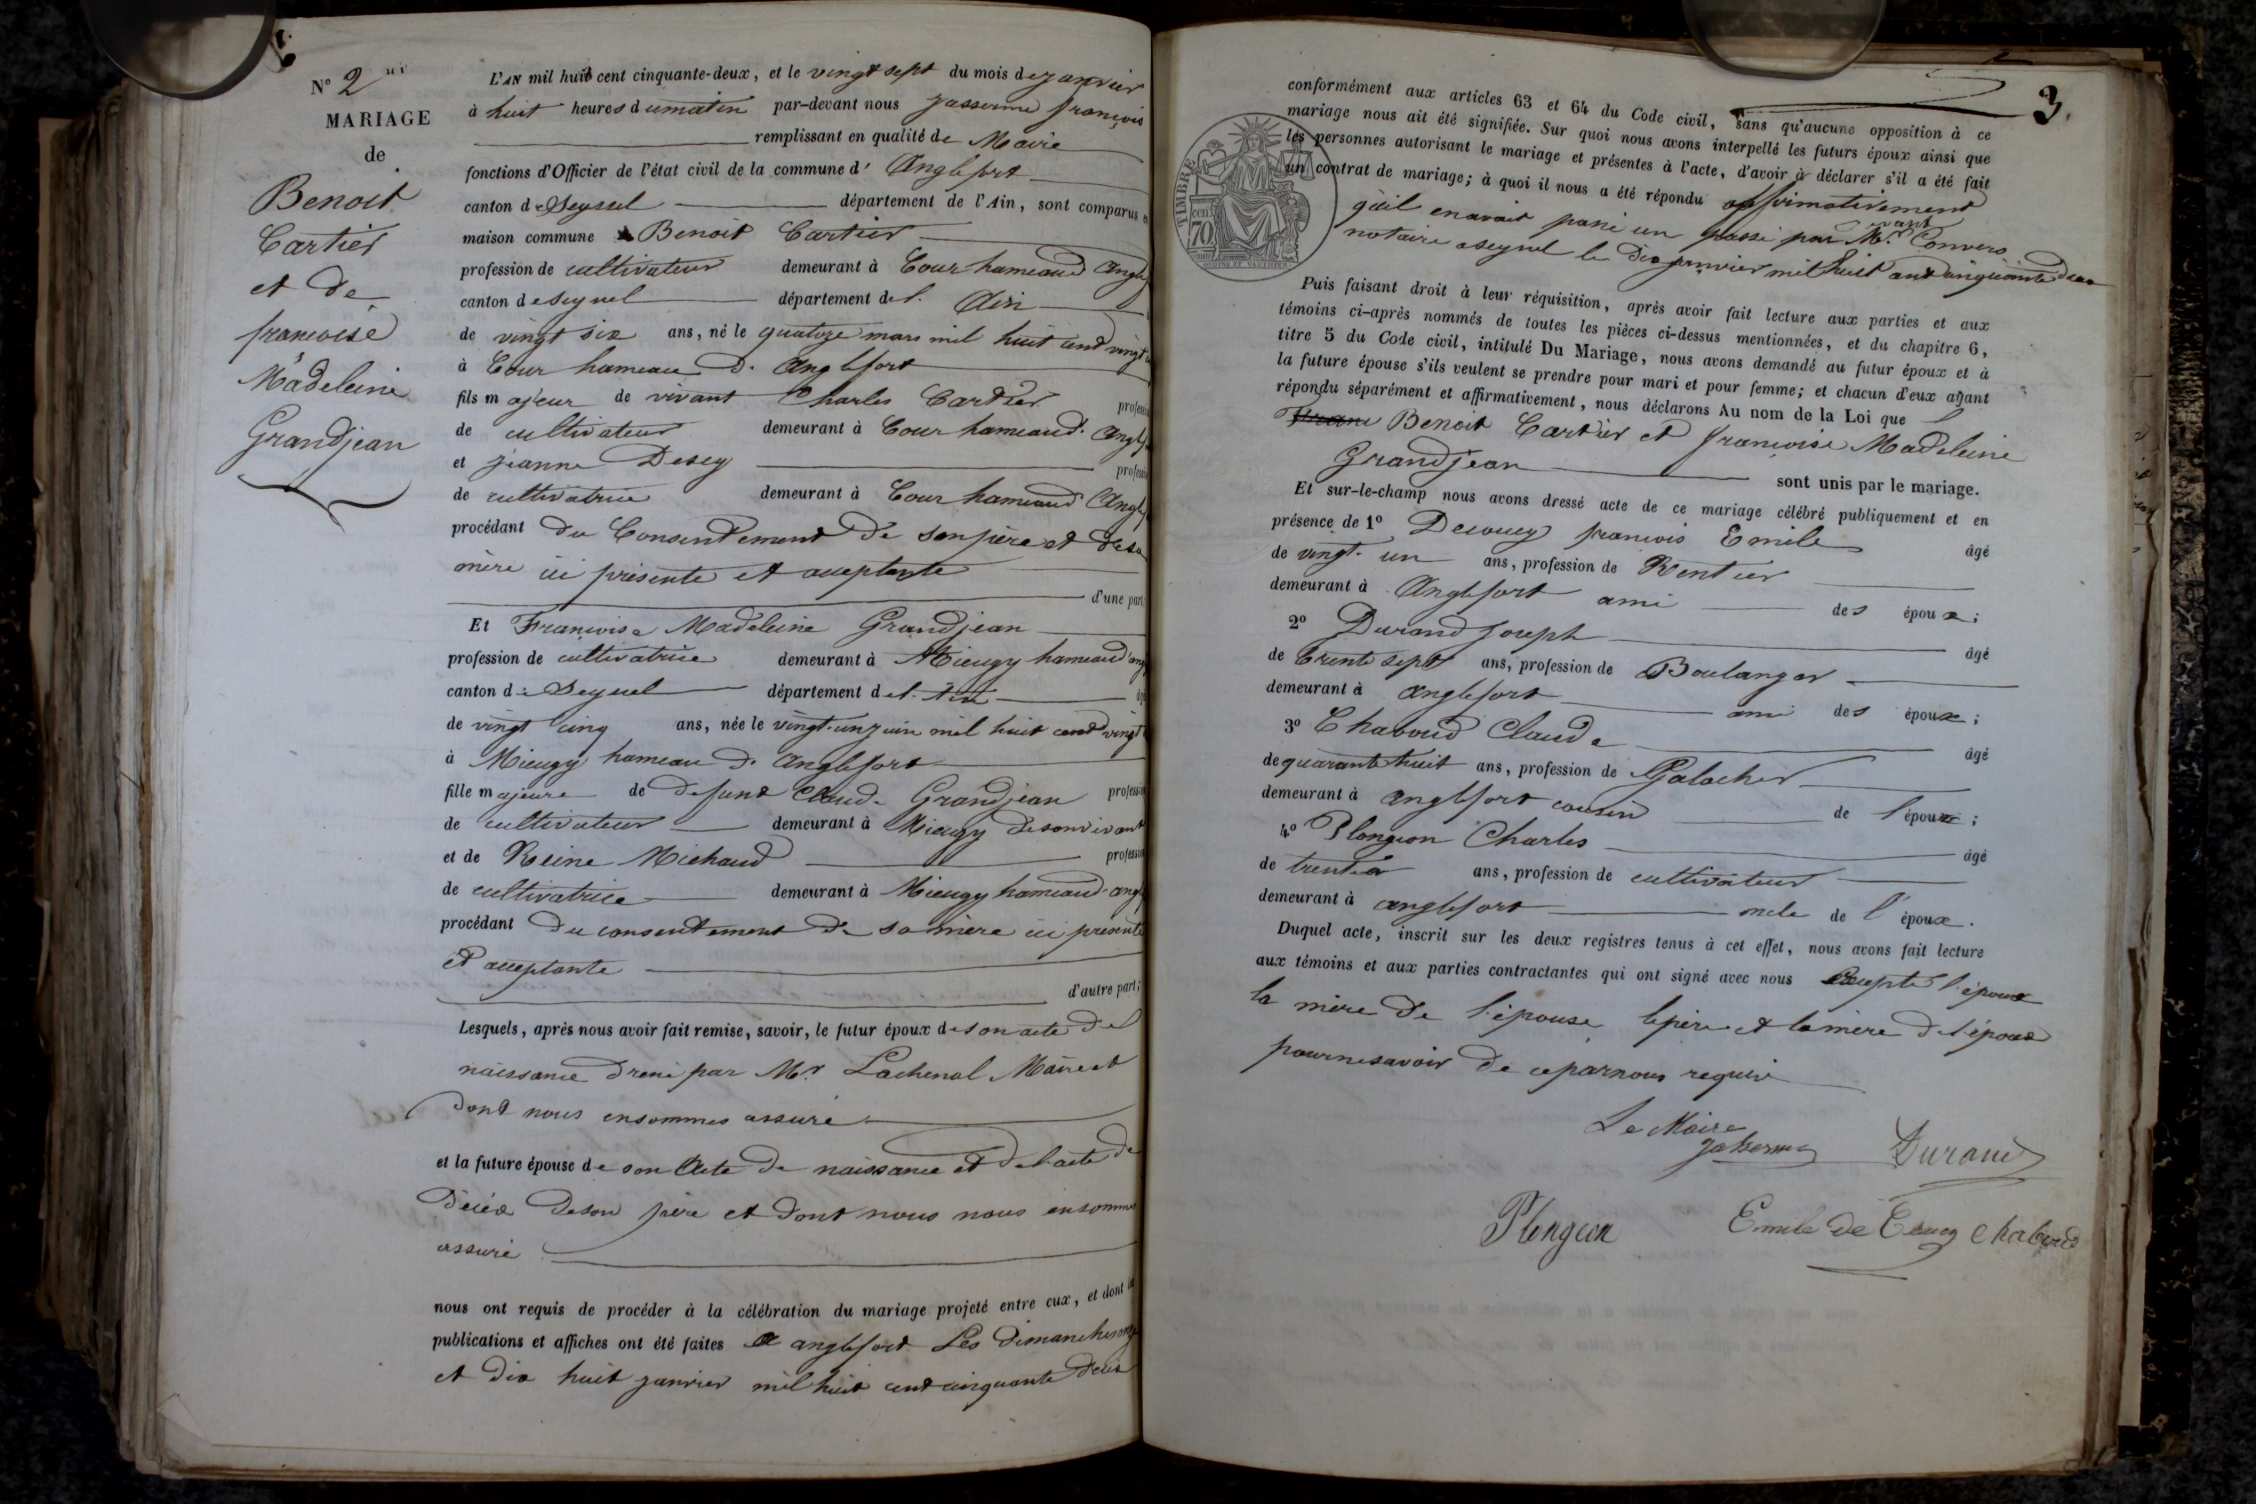 N° 2
MARIAGE
de
Benoit
Cartier
et de
francoise
Madeleine
Grandjean
L'AN mil huit cent cinquante-deux, et le vingt sept du mois de janvier
à huit heures du matin par-devant nous Jasserme françois
remplissant en qualité de Maire
fonctions d'Officier de l'état civil de la commune d' Anglefort
canton de Seyssel département de l'Ain, sont comparus en
maison commune Benoit Cartier
profession de cultivateur demeurant à Cour hameau d'Angle
canton de Seyssel département de l' Ain
de vingt six ans, né le quatorze mars mil huit cent vingt
à Cour hameau d' Anglefort
fils majeur de vivant Charles Cartier profess
de cultivateur demeurant à Cour hameau d' Anglef
et jeanne Desey profess
de cultivatrice demeurant à Cour hameau d' Anglef
procédant du Consentement de son père et de sa
mère ici présente et acceptante
d'une part;
Et Françoise Madeleine Grandjean
profession de cultivatrice demeurant à Mieugy hameau d'ang
canton de Seyssel département de l' Ain
de vingt cinq ans, née le vingt-un juin mil huit cent vingt
à Mieugy hameau d' Anglefort
fille majeure de defunt Claude Grandjean profession
de cultivateur demeurant à Mieugy de son vivant
et de Reine Michaud profession
de cultivatrice demeurant à Mieugy hameau d'angl
procédant du consentement de sa mère ici présente
et acceptante
d'autre part;
Lesquels, après nous avoir fait remise, savoir, le futur époux de son acte de
naissance par Mr Lachenal Maire et
dont nous ensommes assuré
et la future épouse de son Acte de naissance et de l'acte de
décéa de son père et dont nous nous ensommes
assuré
nous ont requis de procéder à la célébration du mariage projeté entre eux, et dont les
publications et affiches ont été faites a anglefort Les dimanches onze
et dix huit janvier mil huit cent cinquante deux
3.
conformément aux articles 63 et 64 du Code civil, sans qu'aucune opposition à ce
mariage nous ait été signifiée. Sur quoi nous avons interpellé les futurs époux ainsi que
les personnes autorisant le mariage et présentes à l'acte, d'avoir à déclarer s'il a été fait
un contrat de mariage; à quoi il nous a été répondu affirmativement
qu'il en avait passé un passé par Mr Convers
notaire a seyssel le dix janvier mil huit cent cinquante deux
TIMBRE
70
Puis faisant droit à leur réquisition, après avoir fait lecture aux parties et aux
témoins ci-après nommés de toutes les pièces ci-dessus mentionnées, et du chapitre 6,
titre 5 du Code civil, intitulé Du Mariage, nous avons demandé au futur époux et à
la future épouse s'ils veulent se prendre pour mari et pour femme; et chacun d'eux ayant
répondu séparément et affirmativement, nous déclarons Au nom de la Loi que
Benoit Cartier et françoise Madeleine
Grandjean sont unis par le mariage.
Et sur-le-champ nous avons dressé acte de ce mariage célébré publiquement et en
présence de 1° Decoucy francois Emile âgé
de vingt-un ans, profession de Rentier
demeurant à Anglefort ami des époux;
2° Durand Joseph âgé
de trente sept ans, profession de Boulanger
demeurant à anglefort ami des époux;
3° Chaboud Claude âgé
de quarante huit ans, profession de Galocher
demeurant à anglefort cousin de l'époux;
4° Plongeon Charles âgé
de trente ans, profession de cultivateur
demeurant à anglefort oncle de l'époux.
Duquel acte, inscrit sur les deux registres tenus à cet effet, nous avons fait lecture
aux témoins et aux parties contractantes qui ont signé avec nous Excepté l'époux
la mère de l'épouse le père et la mère de l'époux
pour ne savoir de ce par nous requis
Le Maire
Jasserme
Durand
Plongeon
Emile de Coucy
Chaboud